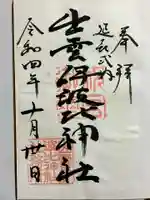 奉拝
延喜式内
出雲伊波比神社
令和四年十月卅日